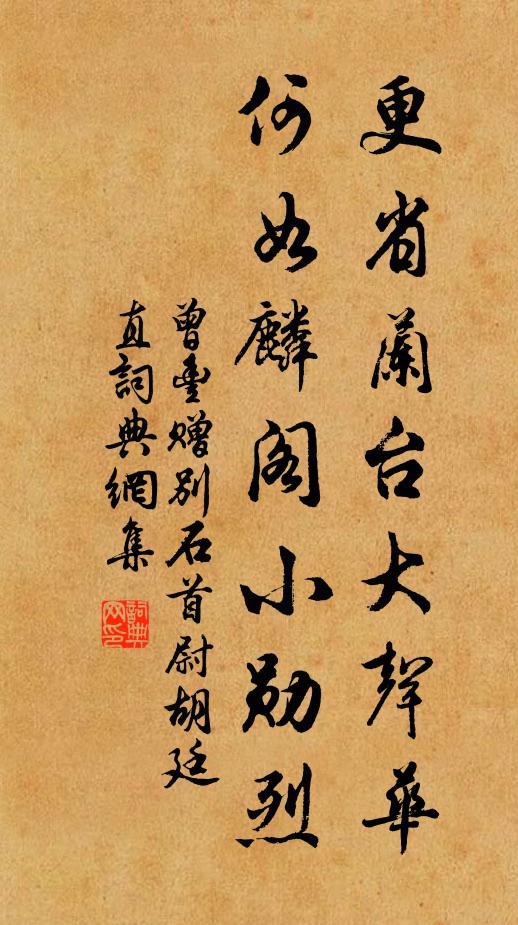 更省蘭台大聲華
何如麟阁小勋烈
曾豐赠别石首尉胡廷
直詞典網集
詞典
网印